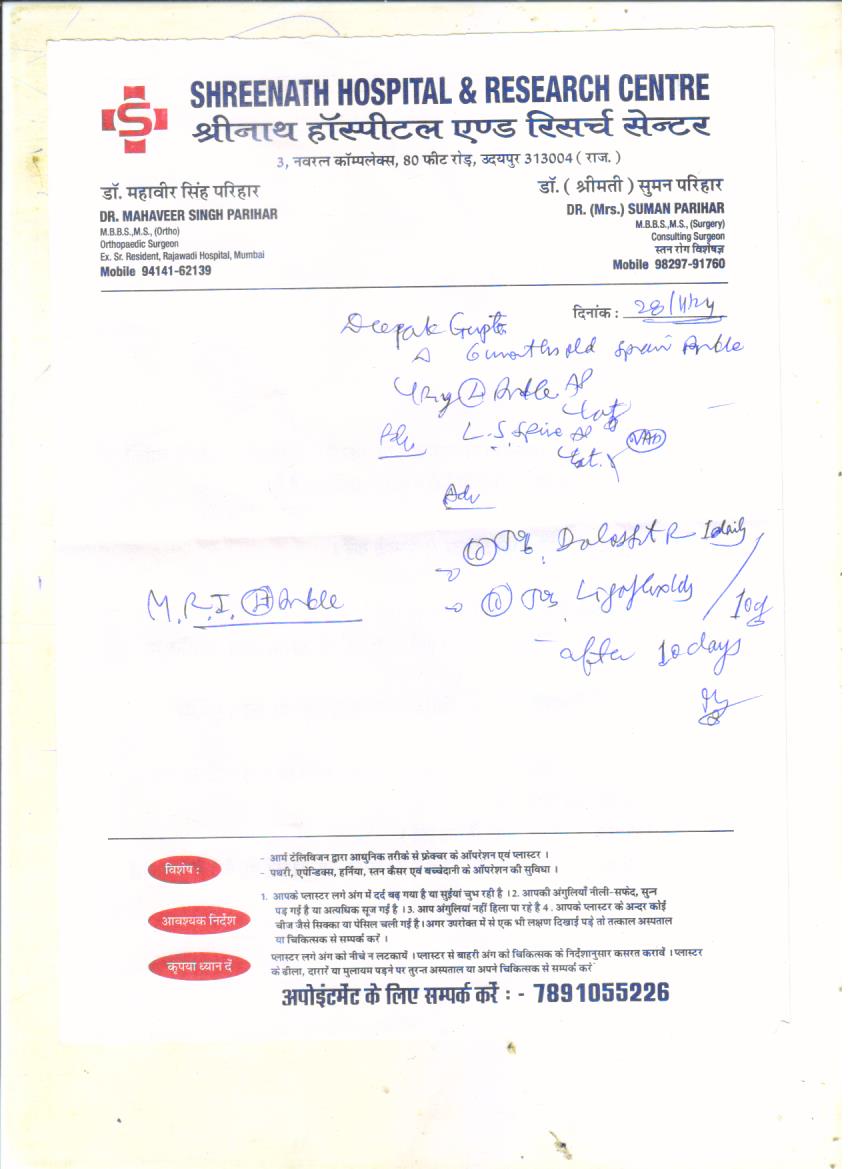 SHREENATH HOSPITAL & RESEARCH CENTRE
श्रीनाथ हॉस्पीटल एण्ड रिसर्च सेन्टर
3, नवरत्न कॉम्पलेक्स, 80 फीट रोड़, उदयपुर 313004 ( राज. )
डॉ. महावीर सिंह परिहार
DR. MAHAVEER SINGH PARIHAR
M.B.B.S.,M.S., (Ortho)
Orthopaedic Surgeon
Ex. Sr. Resident, Rajawadi Hospital, Mumbai
Mobile 94141-62139
डॉ. ( श्रीमती ) सुमन परिहार
DR. (Mrs.) SUMAN PARIHAR
M.B.B.S.,M.S., (Surgery)
Consulting Surgeon
स्तन रोग विशेषज्ञ
Mobile 98297-91760
दिनांक :
Deepak Gupta
6 months old Ankle
Ankle AP
Lat
L.S. Spine AP
Lat.
Adv
1 daily
M.R.I. Ankle
after 10 days
विशेष :
- आर्म टेलिविजन द्वारा आधुनिक तरीके से फ्रेक्चर के ऑपरेशन एवं प्लास्टर ।
- पथरी, एपेन्डिक्स, हर्निया, स्तन कैसर एवं बच्चेदानी के ऑपरेशन की सुविधा ।
आवश्यक निर्देश
1. आपके प्लास्टर लगे अंग में दर्द बढ़ गया है या सुईयां चुभ रही है । 2. आपकी अंगुलियाँ नीली-सफेद, सुन्न
पड़ गई है या अत्यधिक सूज गई है । 3. आप अंगुलियाँ नहीं हिला पा रहे है 4 . आपके प्लास्टर के अन्दर कोई
चीज जैसे सिक्का या पेंसिल चली गई है। अगर उपरोक्त में से एक भी लक्षण दिखाई पड़े तो तत्काल अस्पताल
या चिकित्सक से सम्पर्क करें ।
कृपया ध्यान दें
प्लास्टर लगे अंग को नीचे न लटकायें । प्लास्टर से बाहरी अंग को चिकित्सक के निर्देशानुसार कसरत करावें । प्लास्टर
के ढीला, दारारें या मुलायम पड़ने पर तुरन्त अस्पताल या अपने चिकित्सक से सम्पर्क करें
अपोइंटमेंट के लिए सम्पर्क करें : - 7891055226